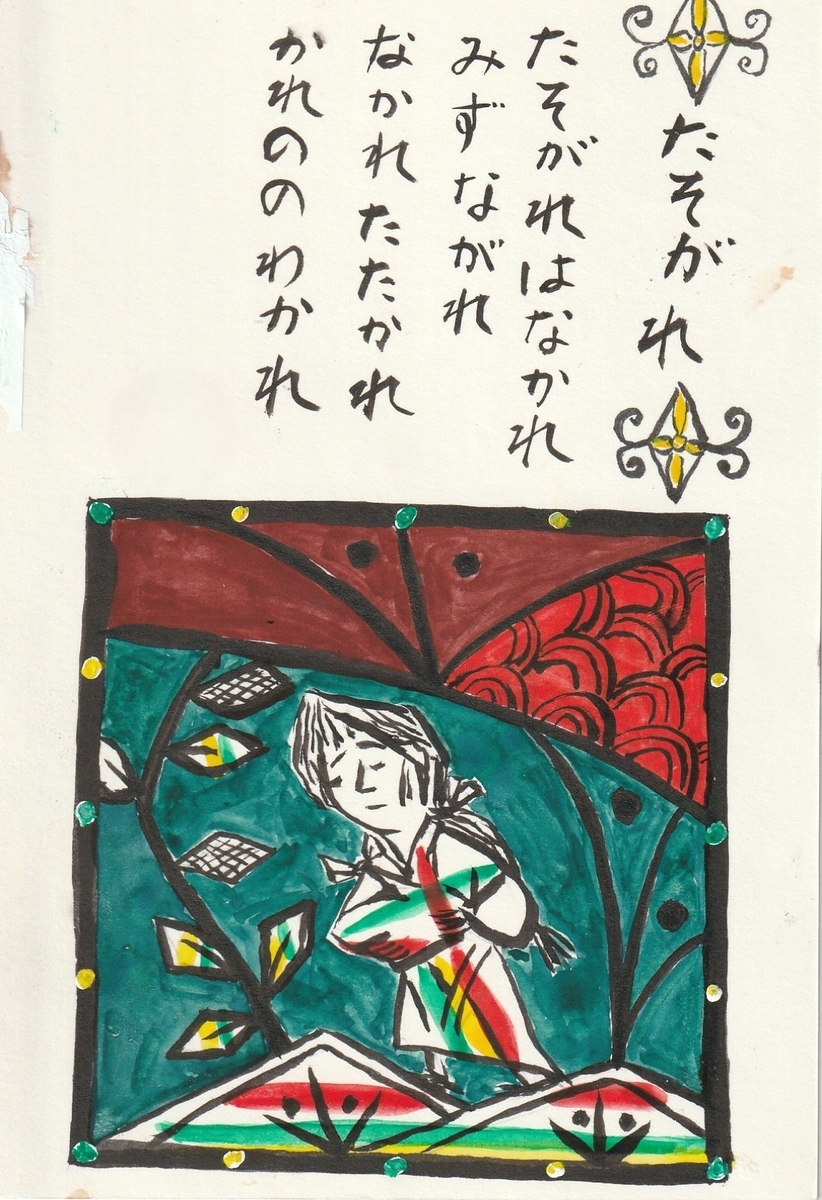 たそがれ
たそがれはなかれ
みずながれ
なかれたたかれ
かれののわかれ